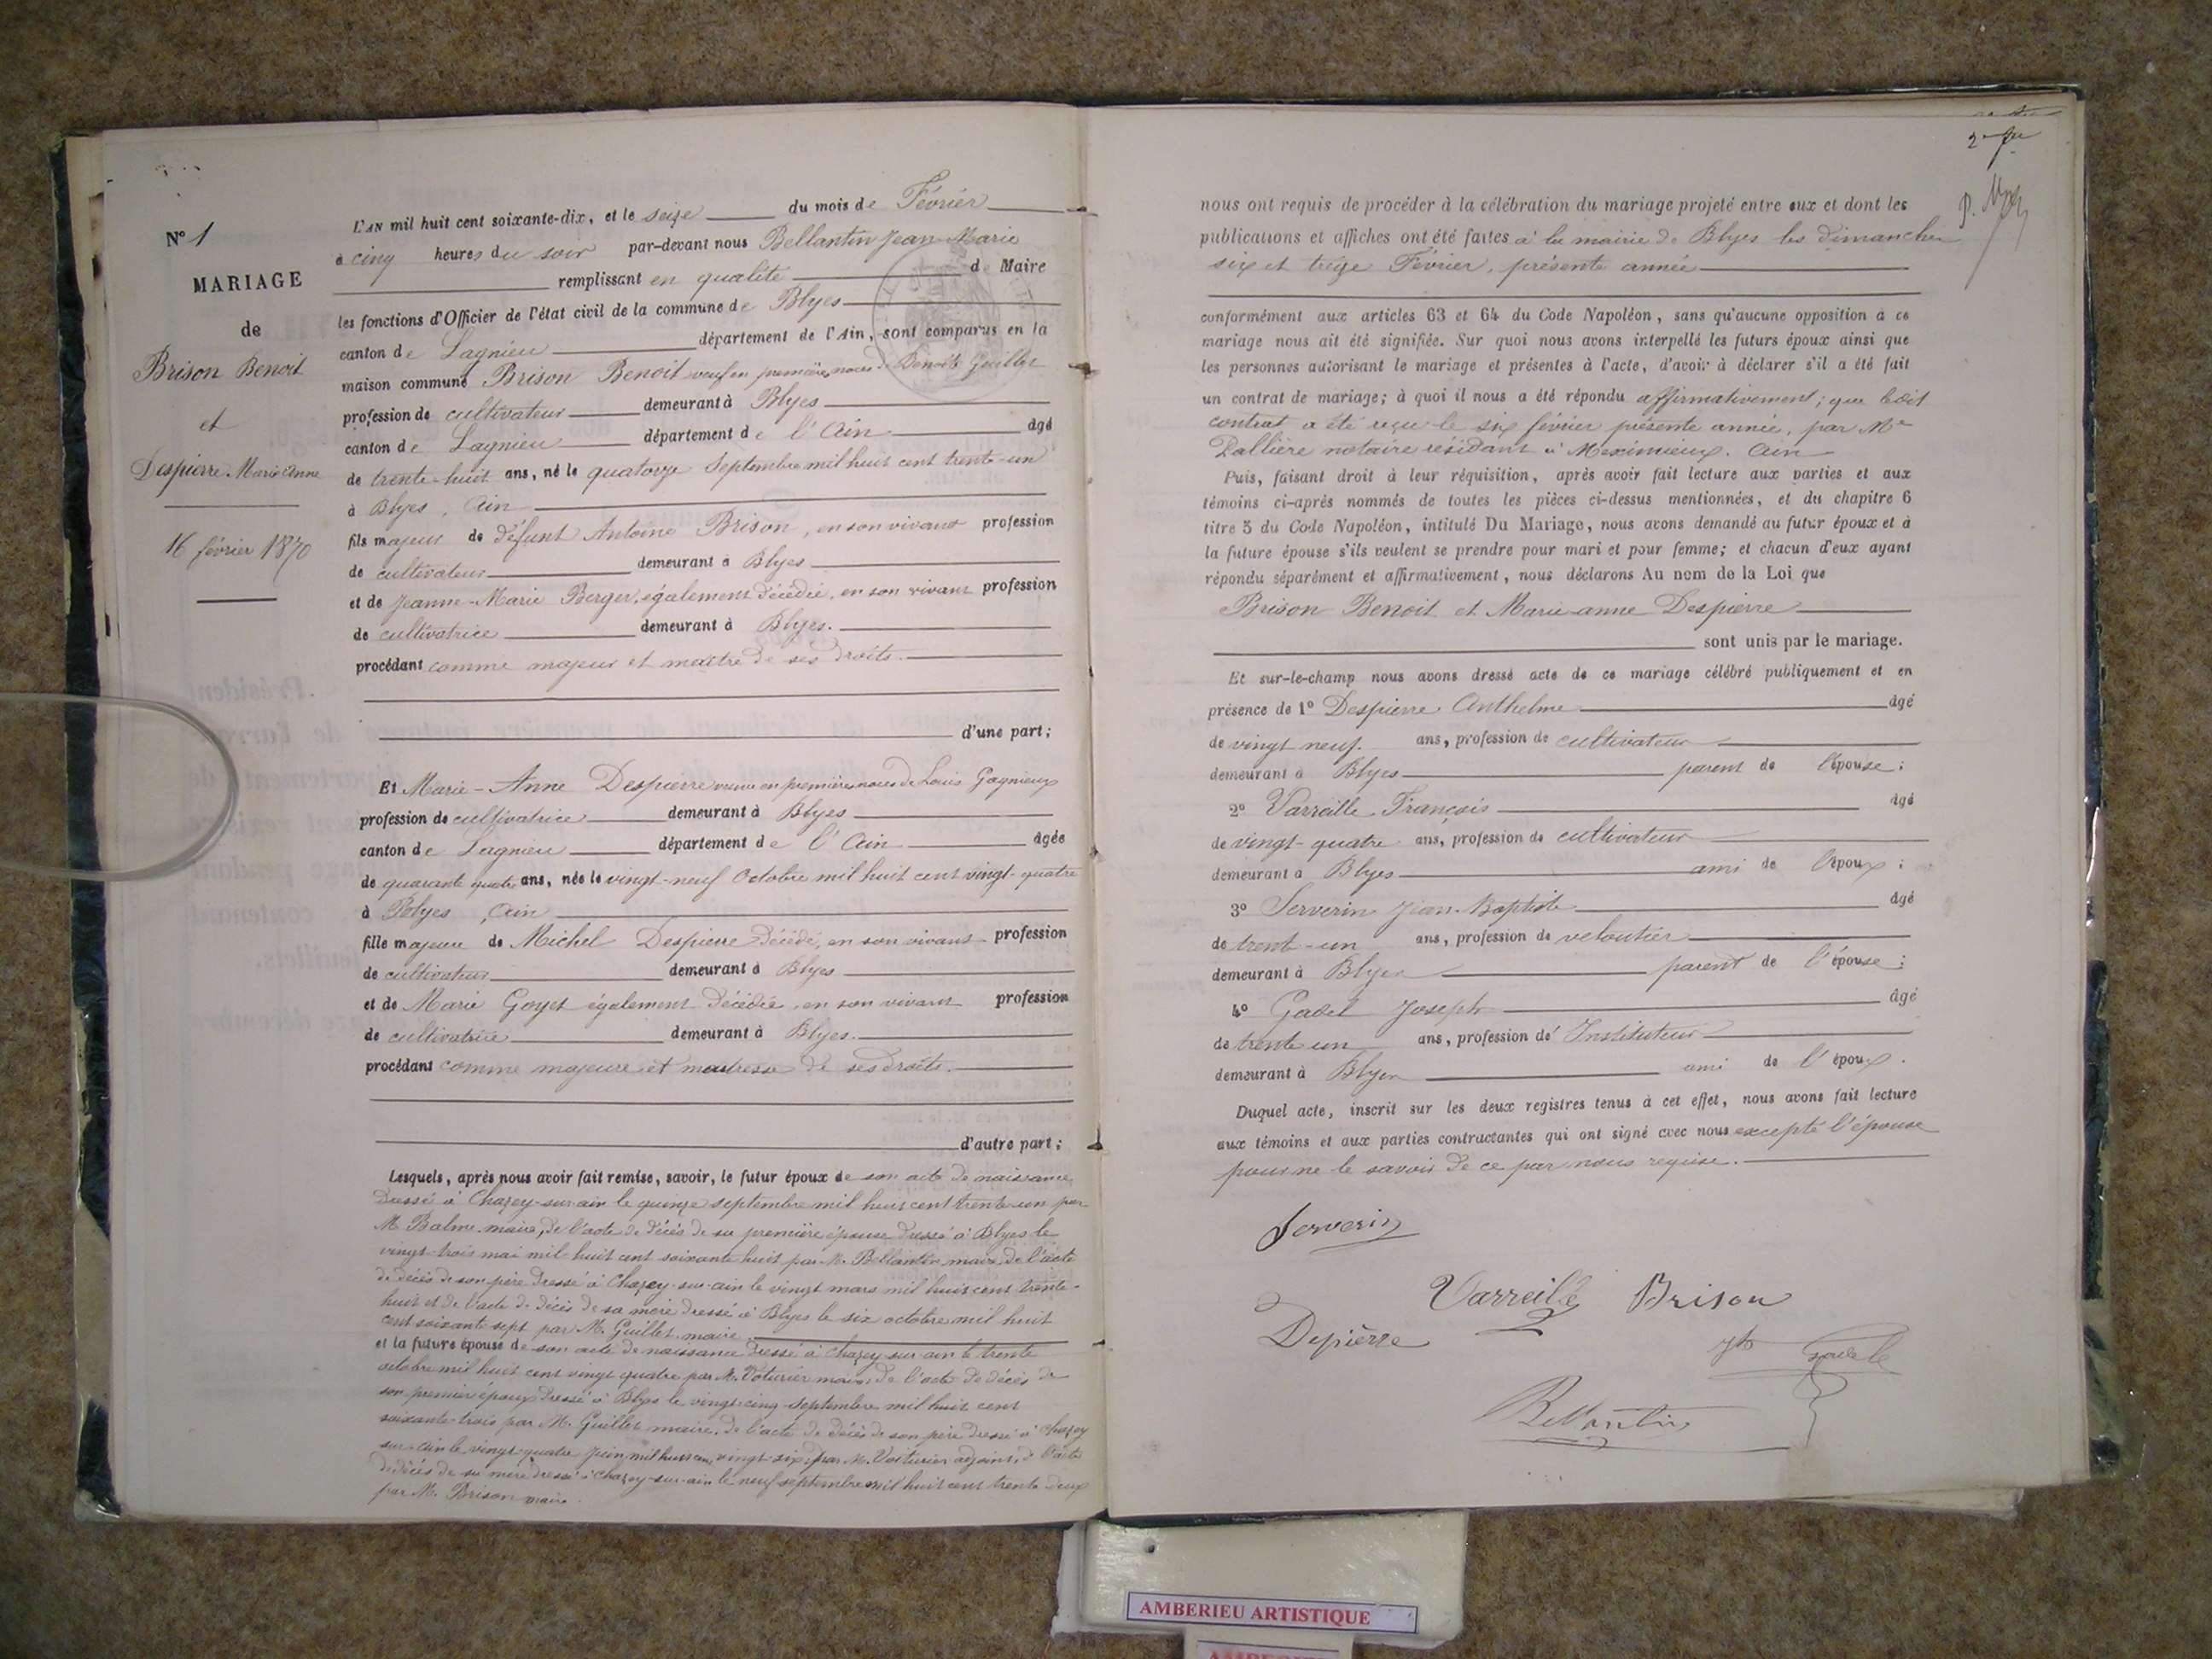 N° 1
MARIAGE
de
Brison Benoit
et
Despierre Marie Anne
16 février 1870
L'AN mil huit cent soixante-dix, et le seize du mois de Février
à cinq heures du soir par-devant nous Bellantin Jean-Marie
remplissant en qualité de Maire
les fonctions d'Officier de l'état civil de la commune de Blyes
canton de Lagnieu département de l'Ain, sont comparus en la
maison commune Brison Benoit veuf en premières noces de Benoite Guillet
profession de cultivateur demeurant à Blyes
canton de Lagnieu département de l'Ain âgé
de trente-huit ans, né le quatorze Septembre mil huit cent trente-un
à Blyes, Ain
fils majeur de défunt Antoine Brison, en son vivant profession
de cultivateur demeurant à Blyes
et de Jeanne-Marie Berger, également décédée, en son vivant profession
de cultivatrice demeurant à Blyes.
procédant comme majeur et maître de ses droits.
d'une part;
Et Marie-Anne Despierre veuve en premières noces de Louis Gagnieux
profession de cultivatrice demeurant à Blyes
canton de Lagnieu département de l'Ain âgée
de quarante quatre ans, née le vingt-neuf Octobre mil huit cent vingt-quatre
à Blyes, Ain
fille majeure de Michel Despierre décédé, en son vivant profession
de cultivateur demeurant à Blyes
et de Marie Goyet également décédée, en son vivant profession
de cultivatrice demeurant à Blyes.
procédant comme majeure et maitresse de ses droits.
d'autre part;
Lesquels, après nous avoir fait remise, savoir, le futur époux de son acte de naissance
dressé à Chazey-sur-ain le quinze septembre mil huit cent trente-un par
M Balme maire, de l'acte de décès de sa première épouse dressé à Blyes le
vingt-trois mai mil huit cent soixante huit par M. Bellantin maire, de l'acte
de décès de son père dressé à Chazey-sur-ain le vingt mars mil huit cent trente-
huit et de l'acte de décès de sa mère dressé à Blyes le six octobre mil huit
cent soixante sept par M. Guillet maire.
et la future épouse de son acte de naissance dressé à Chazey-sur-ain le trente
octobre mil huit cent vingt quatre par M. Voturier maire, de l'acte de décès de
son premier époux dressé à Blyes le vingt-cinq septembre mil huit cent
soixante trois par M. Guillet maire, de l'acte de décès de son père dressé à Chazey
sur-ain le vingt-quatre juin mil huit cent vingt-six par M. Voiturier adjoint, de l'acte
de décès de sa mère dressé à Chazey-sur-ain le neuf septembre mil huit cent trente deux
par M. Brison maire.
2
nous ont requis de procéder à la célébration du mariage projeté entre eux et dont les
publications et affiches ont été faites à la mairie de Blyes les dimanches
six et treize Février, présente année
conformément aux articles 63 et 64 du Code Napoléon, sans qu'aucune opposition à ce
mariage nous ait été signifiée. Sur quoi nous avons interpellé les futurs époux ainsi que
les personnes autorisant le mariage et présentes à l'acte, d'avoir à déclarer s'il a été fait
un contrat de mariage; à quoi il nous a été répondu affirmativement; que ledit
contrat a été reçu le six février présente année, par Me
Pallière notaire résidant à Meximieux. Ain
Puis, faisant droit à leur réquisition, après avoir fait lecture aux parties et aux
témoins ci-après nommés de toutes les pièces ci-dessus mentionnées, et du chapitre 6
titre 5 du Code Napoléon, intitulé Du Mariage, nous avons demandé au futur époux et à
la future épouse s'ils veulent se prendre pour mari et pour femme; et chacun d'eux ayant
répondu séparément et affirmativement, nous déclarons Au nom de la Loi que
Brison Benoit et Marie-anne Despierre
sont unis par le mariage.
Et sur-le-champ nous avons dressé acte de ce mariage célébré publiquement et en
présence de 1° Despierre Anthelme âgé
de vingt neuf ans, profession de cultivateur
demeurant à Blyes parent de l'épouse;
2° Varreille François âgé
de vingt-quatre ans, profession de cultivateur
demeurant à Blyes ami de l'époux;
3° Serverin Jean-Baptiste âgé
de trent-un ans, profession de veloutier
demeurant à Blyes parent de l'épouse;
4° Gadel Joseph âgé
de trente un ans, profession de Instituteur
demeurant à Blyes ami de l'époux.
Duquel acte, inscrit sur les deux registres tenus à cet effet, nous avons fait lecture
aux témoins et aux parties contractantes qui ont signé avec nous excepté l'épouse
pour ne le savoir de ce par nous requise.
Serverin
Varreille Brison
Depièrre
Jh Gadel
Bellantin
AMBERIEU ARTISTIQUE